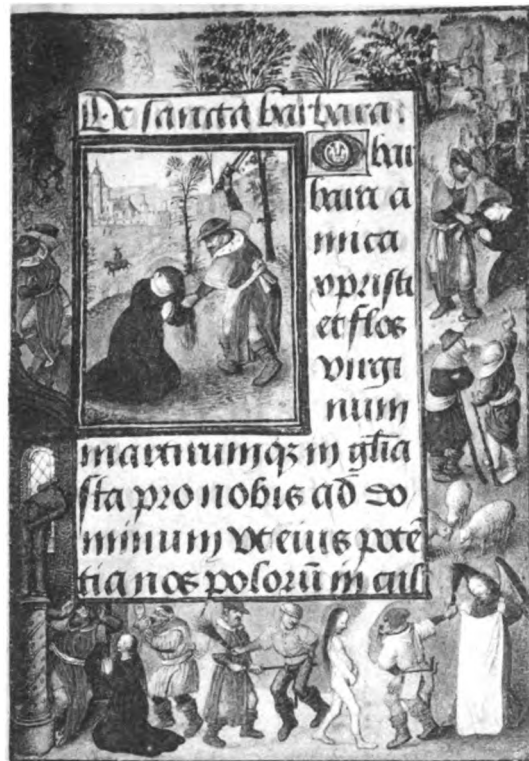 De sancta barbara.
O bar
bara a
mica
xpristi
et flos
virgi
num
martirumqꝫ in gl̄ia
sta pro nobis ad do
minum vt eius potē
tia nos polorū in cus